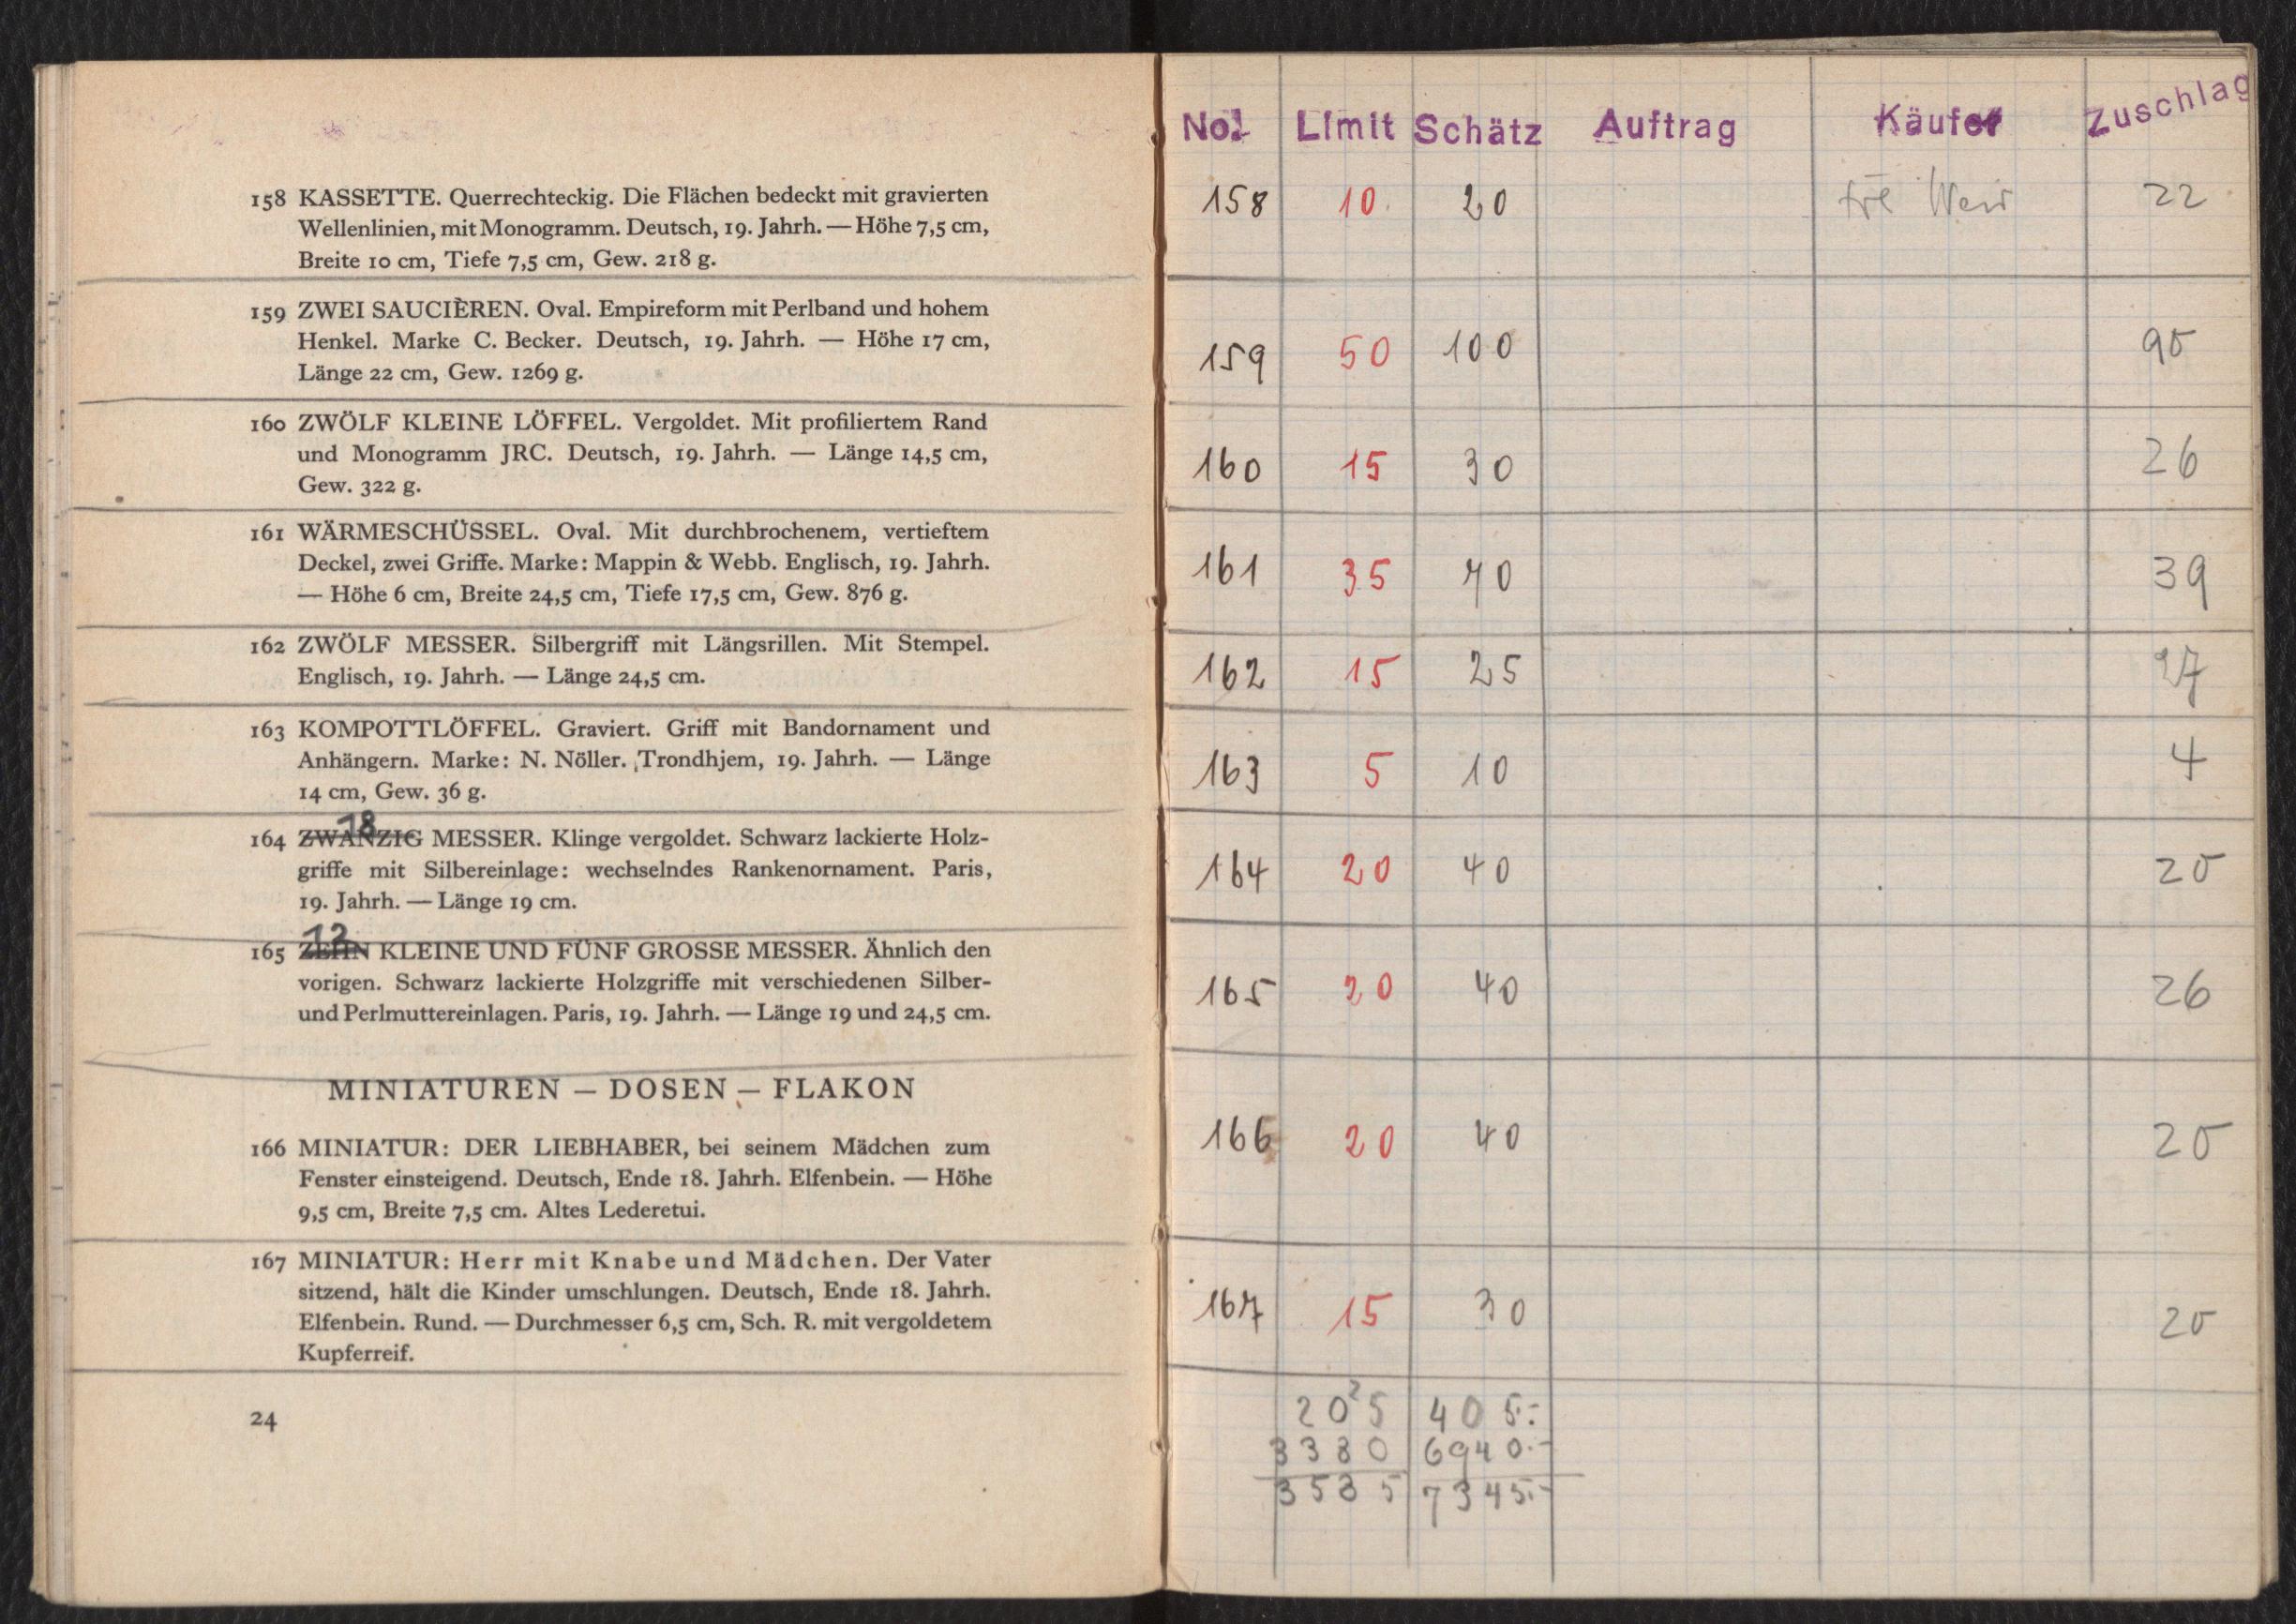 158 KASSETTE. Querrechteckig. Die Flächen bedeckt mit gravierten
Wellenlinien, mit Monogramm. Deutsch, 19. Jahrh. — Höhe 7,5 cm,
Breite 10 cm, Tiefe 7,5 cm, Gew. 218 g.
159 ZWEI SAUCIÈREN. Oval. Empireform mit Perlband und hohem
Henkel. Marke C. Becker. Deutsch, 19. Jahrh. — Höhe 17 cm,
Länge 22 cm, Gew. 1269 g.
160 ZWÖLF KLEINE LÖFFEL. Vergoldet. Mit profiliertem Rand
und Monogramm JRC. Deutsch, 19. Jahrh. — Länge 14,5 cm,
Gew. 322 g.
161 WÄRMESCHÜSSEL. Oval. Mit durchbrochenem, vertieftem
Deckel, zwei Griffe. Marke: Mappin & Webb. Englisch, 19. Jahrh.
— Höhe 6 cm, Breite 24,5 cm, Tiefe 17,5 cm, Gew. 876 g.
162 ZWÖLF MESSER. Silbergriff mit Längsrillen. Mit Stempel.
Englisch, 19. Jahrh. — Länge 24,5 cm.
163 KOMPOTTLÖFFEL. Graviert. Griff mit Bandornament und
Anhängern. Marke: N. Nöller. Trondhjem, 19. Jahrh. — Länge
14 cm, Gew. 36 g.
18
164 ZWANZIG MESSER. Klinge vergoldet. Schwarz lackierte Holz-
griffe mit Silbereinlage: wechselndes Rankenornament. Paris,
19. Jahrh. — Länge 19 cm.
12
165 ZEHN KLEINE UND FÜNF GROSSE MESSER. Ähnlich den
vorigen. Schwarz lackierte Holzgriffe mit verschiedenen Silber-
und Perlmuttereinlagen. Paris, 19. Jahrh. — Länge 19 und 24,5 cm.
MINIATUREN – DOSEN – FLAKON
166 MINIATUR: DER LIEBHABER, bei seinem Mädchen zum
Fenster einsteigend. Deutsch, Ende 18. Jahrh. Elfenbein. — Höhe
9,5 cm, Breite 7,5 cm. Altes Lederetui.
167 MINIATUR: Herr mit Knabe und Mädchen. Der Vater
sitzend, hält die Kinder umschlungen. Deutsch, Ende 18. Jahrh.
Elfenbein. Rund. — Durchmesser 6,5 cm, Sch. R. mit vergoldetem
Kupferreif.
24
No. Limit Schätz Auftrag Käufer Zuschlag
158 10 20 22
159 50 100 95
160 15 30 26
161 35 70 39
162 15 25 27
163 5 10 4
164 20 40 25
165 20 40 26
166 20 40 25
167 15 30 25
205 405.-
3380 6940.-
3585 7345.-